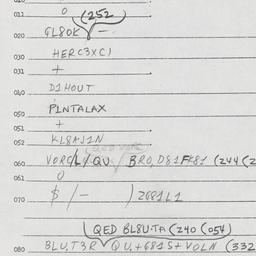 031 0 (252)
020 GL8OK —
030 HERC3XC1
031 +
040 D1HOUT
050 P1NTALAX
051 +
052 KL8AJ1N
060 VORC/L/QU BRO,D81F<81 (244(2
061 0
070 $/— )2001L1
QED BL8U-TA (240 (054)
080 BLU,T3R QU,+681S+VOLN (332